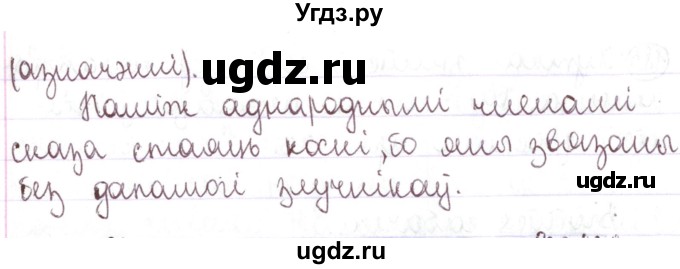 Угдз.ру
(азначэнні).
ugdz.ru
Паміж аднароднымі членамі
сказа стаяць коскі, бо яны звязаны
без дапамогі злучнікаў.
ugdz.ru
ugdz.ru